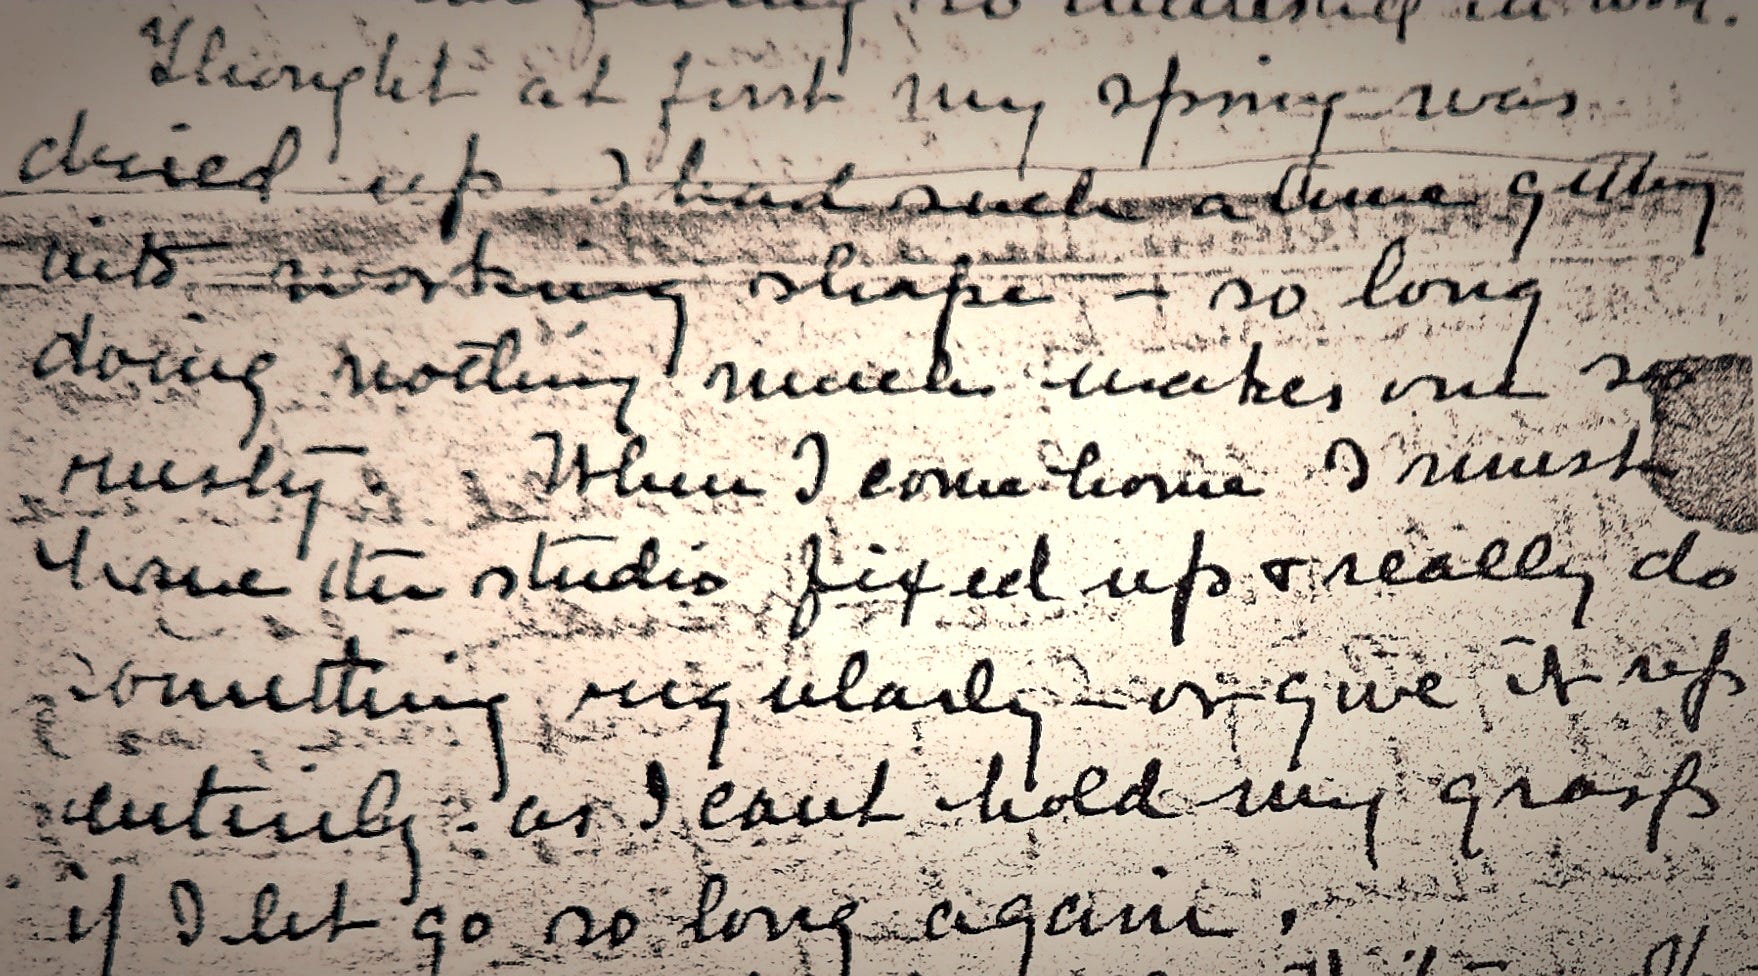 Thought at first my spring was
dried up. I had such a time getting
into working shape - so long
doing nothing much makes one so
rusty. When I come home I must
have the studio fixed up & really do
something regularly - or give it up
entirely - as I cant hold my grasp
if I let go so long again.